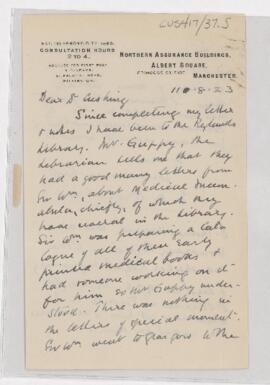 CUSH17/37.5
CONSULTATION HOURS
2 TO 4.
NORTHERN ASSURANCE BUILDINGS,
ALBERT SQUARE,
MANCHESTER.
11-8-23
Dear Dr Cushing
Since completing my letter
& notes I have been to the Rylands
Library. Mr. Guppy, the
Librarian tells me that they
had a good many letters from
Sir Wm, about Medical Incun-
abula, chiefly, of which they
have several in the Library.
Sir Wm. was preparing a Cata-
logue of all of these early
printed medical books &
had someone working on it
for him so Mr Guppy under-
stood. There was nothing in
the letters of special moment.
Sir Wm went to Glasgow to the